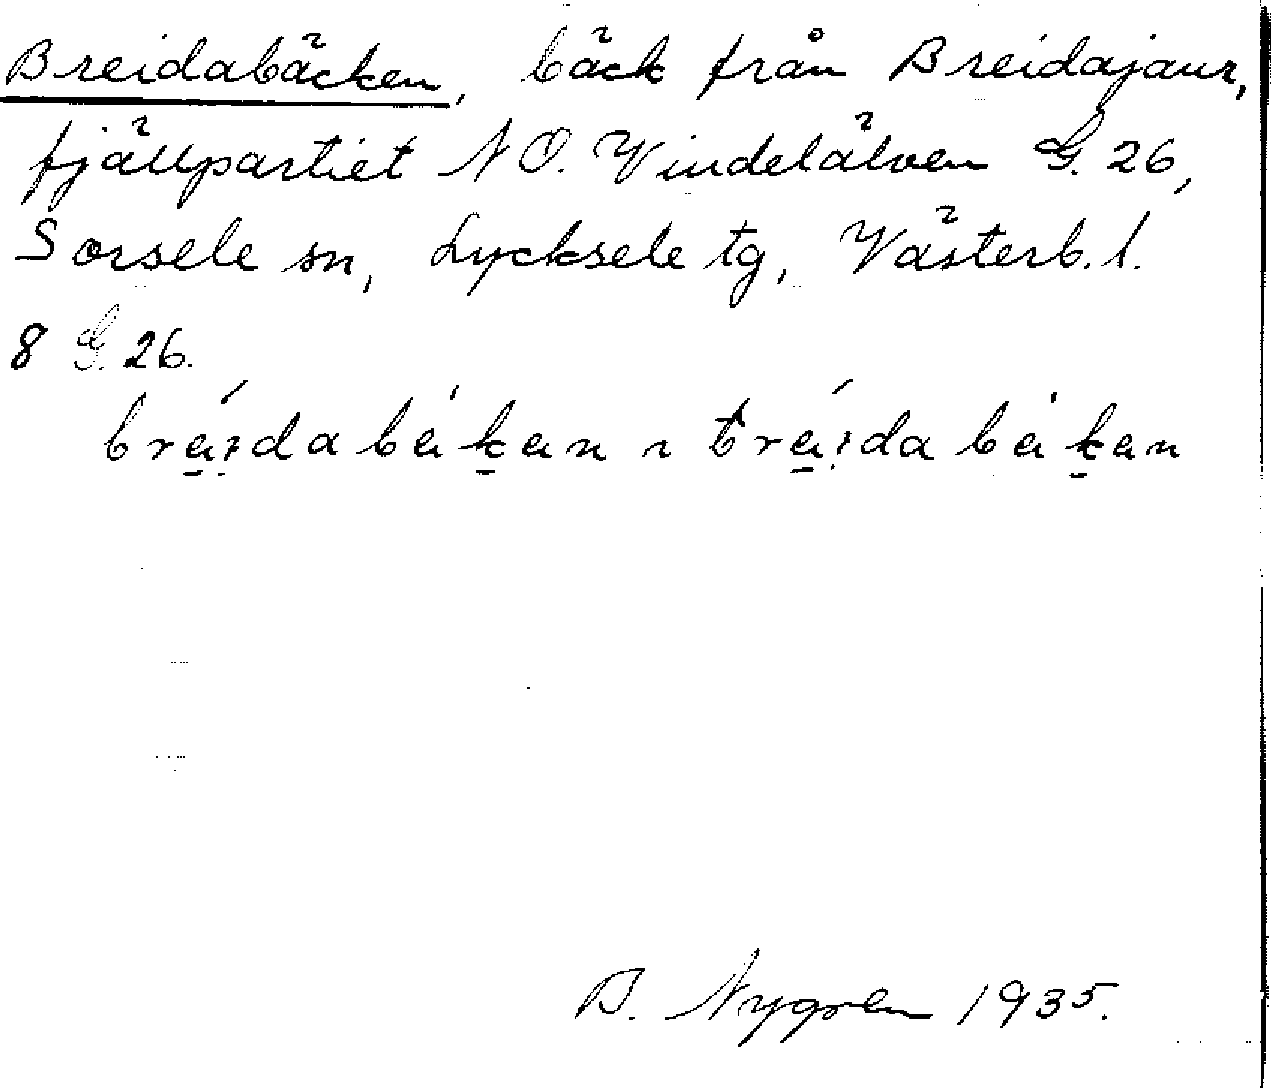 Breidabäcken, bäck från Breidajaur,
fjällpartiet NO. Vindelälven G. 26,
Sorsele sn, Lycksele tg, Västerb. l.
8 G. 26.
B. Nygren 1935.